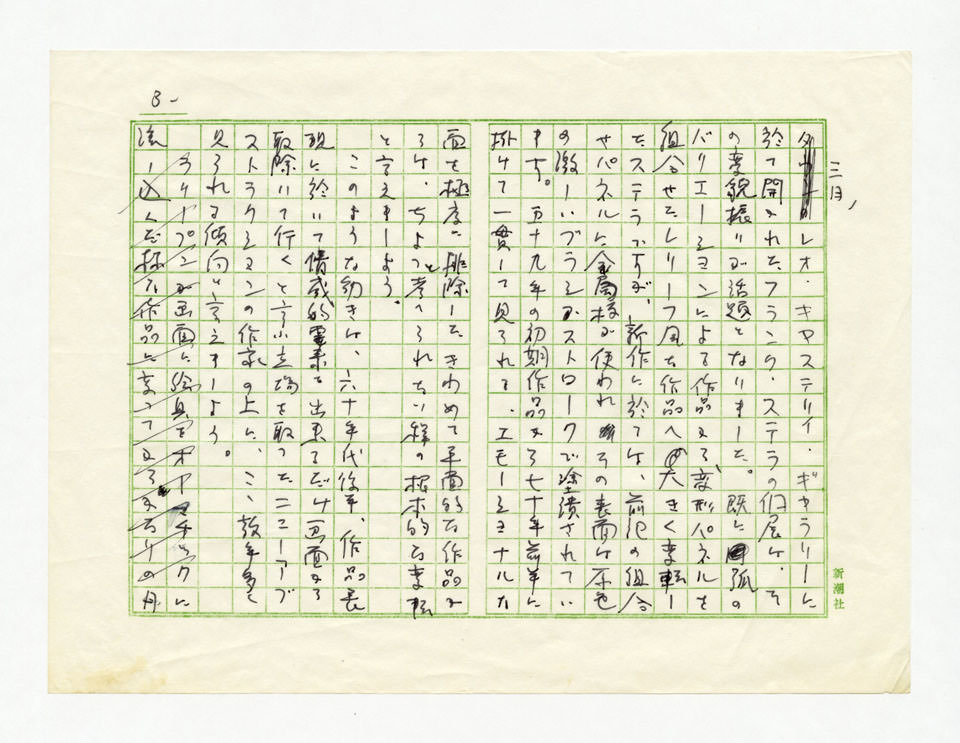 3-
三月、
レオ・キャステリイ・ギャラリーに
於て開かれたフランク・ステラの個展は、そ
の変貌振りが話題となりました。既に弧の
バリエーションによる作品から、変形パネルを
組合せたレリーフ風な作品へ大きく変転し
たステラですが、新作に於ては、前記の組合
せパネルに金属板が使われ その表面は原色
の激しいブラシストロークで塗潰されてい
ます。五十九年の初期作品から七十年前半に
掛けて一貫して見られる、エモーショナルな
面を極度に排除した きわめて平面的な作品か
らは、ちょっと考へられない程の根本的な変転
と言えましょう。
このような動きは、六十年代後半、作品表
現に於いて情感的要素を出来るだけ画面から
取除いて行く と言ふ立場を取ったニューアブ
ストラクションの作家の上に、ここ数年多く
見られる傾向と言えましょう。
画面に絵具をオートマチックに
流し込んだ様な作品に
新潮社